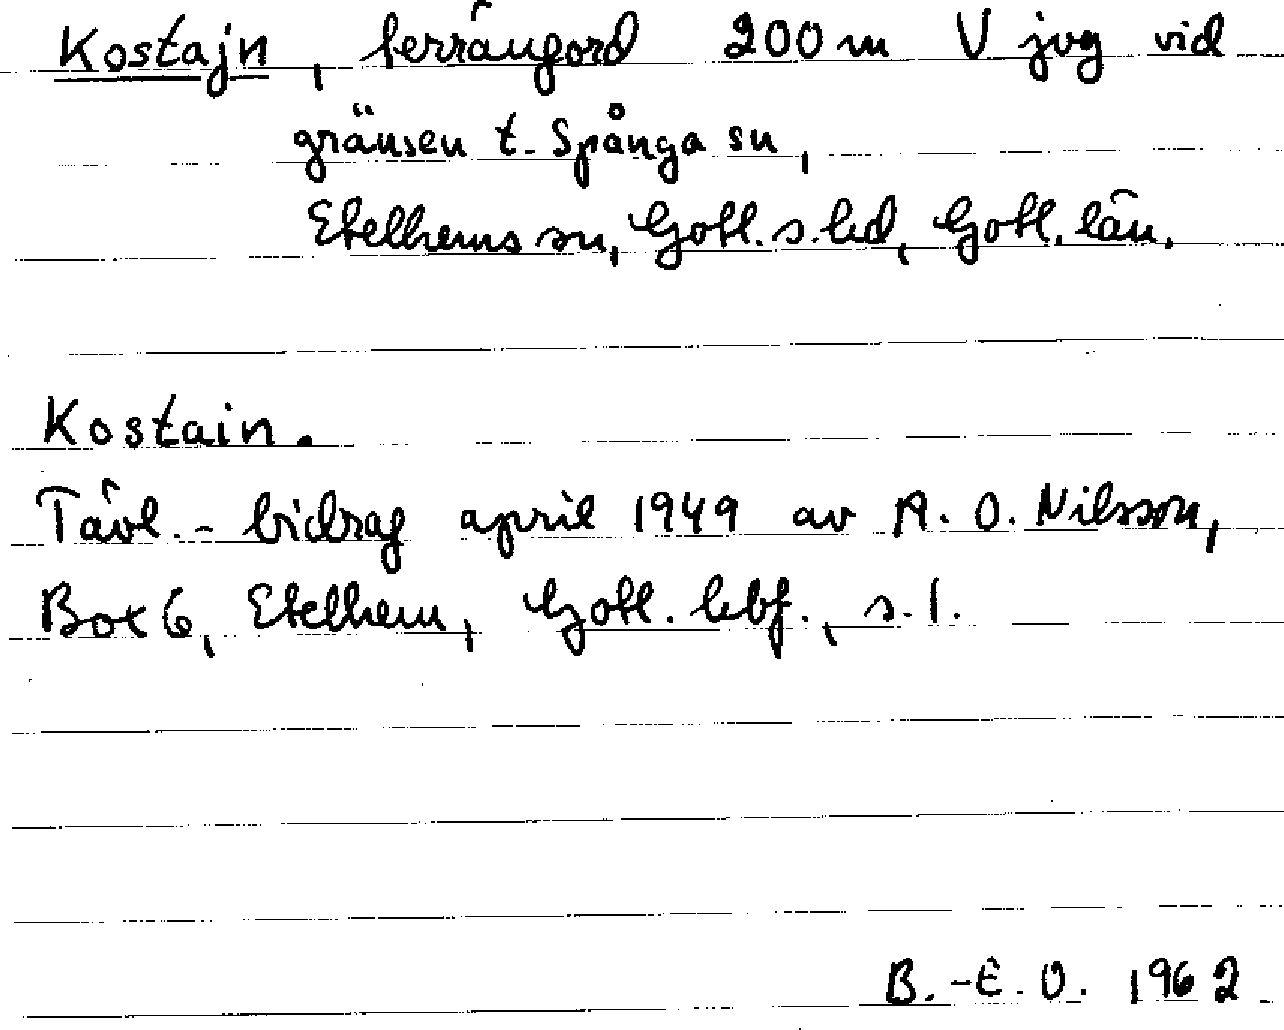 Kostajn, terrängord 200 m V jvg vid
gränsen t. Spånga sn,
Etelhems sn, Gotl. s. hd, Gotl. län.
Kostain.
Tävl.- bidrag april 1949 av A. O. Nilsson,
Box 6, Etelhem, Gotl. lbf., s. 1.
B.-E. O. 1962